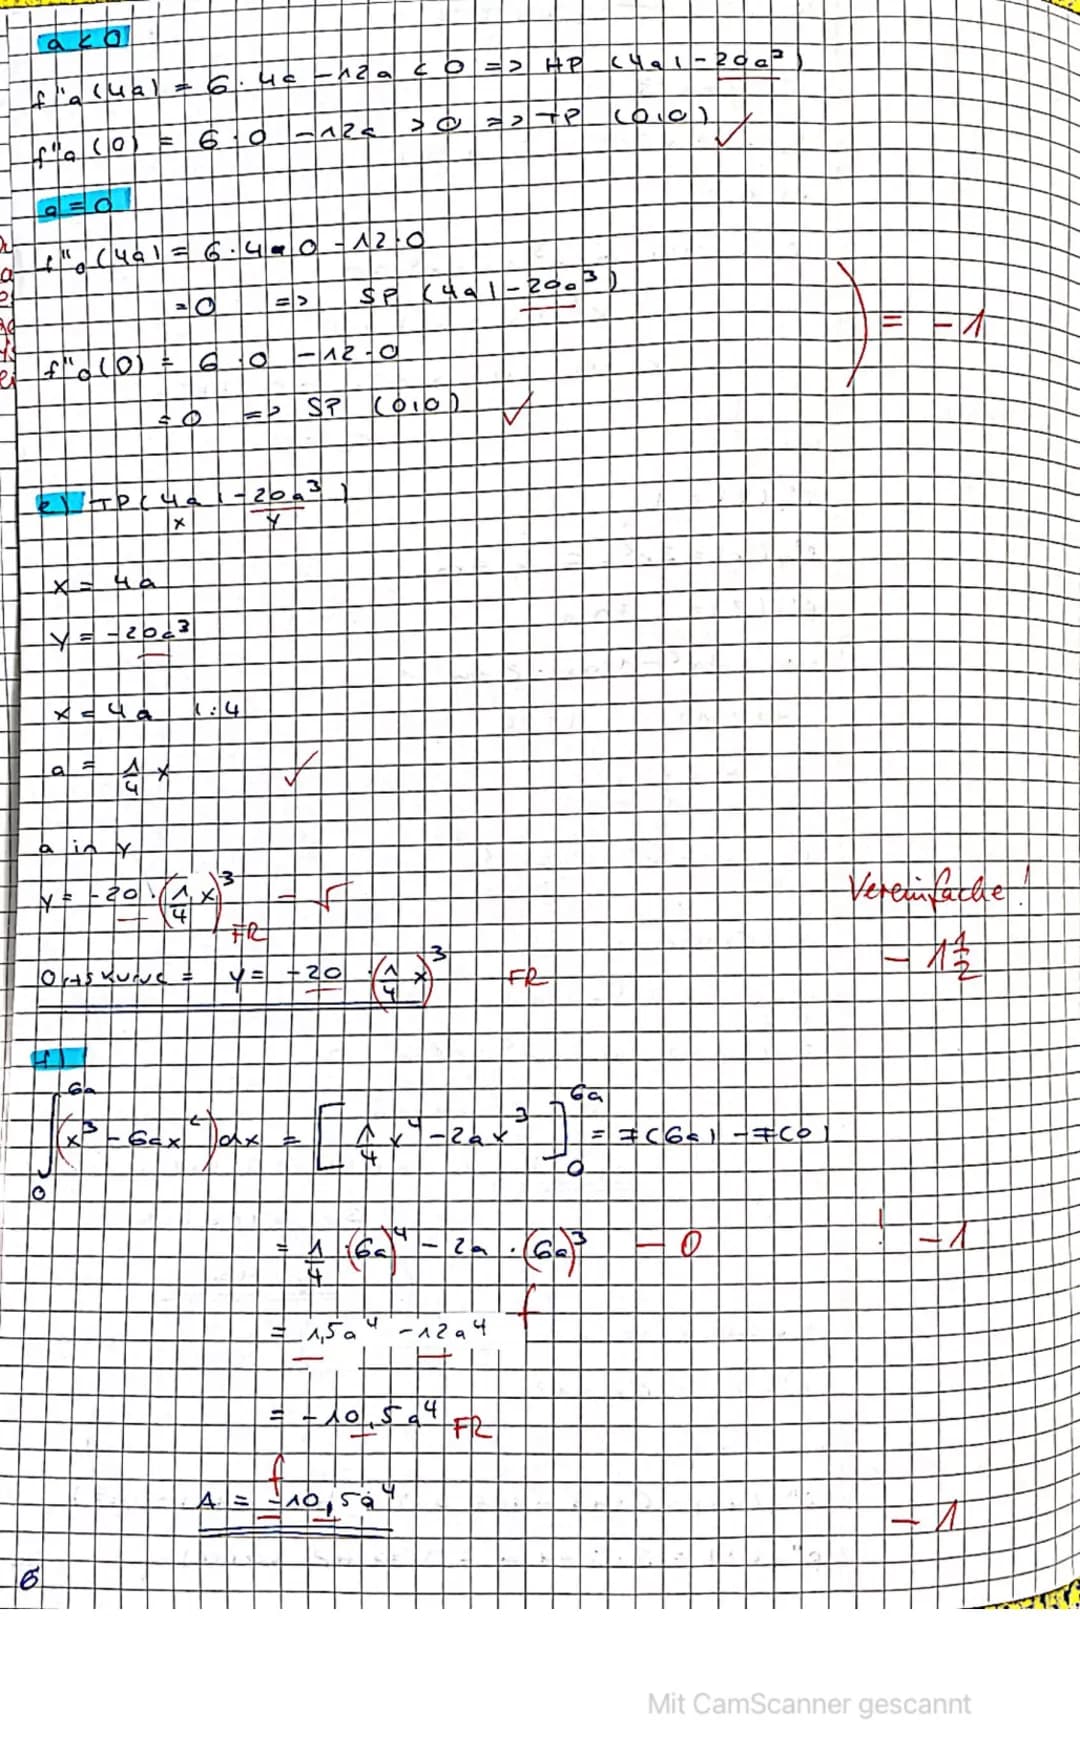 a < 0
f''a (4a) = 6 · 4a - 12a < 0 => HP (4a | -20a³)
f''a (0) = 6 · 0 - 12a > 0 => TP (0|0) ✓
a = 0
f''0 (4a) = 6 · 4 · 0 - 12 · 0
= 0 => SP (4a | -20a³)
) = -1
f''0 (0) = 6 · 0 - 12 · 0
= 0 => SP (0|0) ✓
e) TP (4a | -20a³)
x y
x = 4a
y = -20a³
x = 4a | : 4
a = 1/4 x ✓
a in y
y = -20 · (1/4 x)³
FR
Vereinfache!
Ortskurve = y = -20 · (1/4 x)³ FR
- 1 1/2
f)
∫₀^6a (x³ - 6ax²) dx = [1/4 x⁴ - 2ax³]₀^6a = F(6a) - F(0)
= 1/4 · (6a)⁴ - 2a · (6a)³ - 0 ! -1
f
= 1,5a⁴ - 12a⁴
= -10,5a⁴ FR
f
A = -10,5a⁴
-1
6
Mit CamScanner gescannt